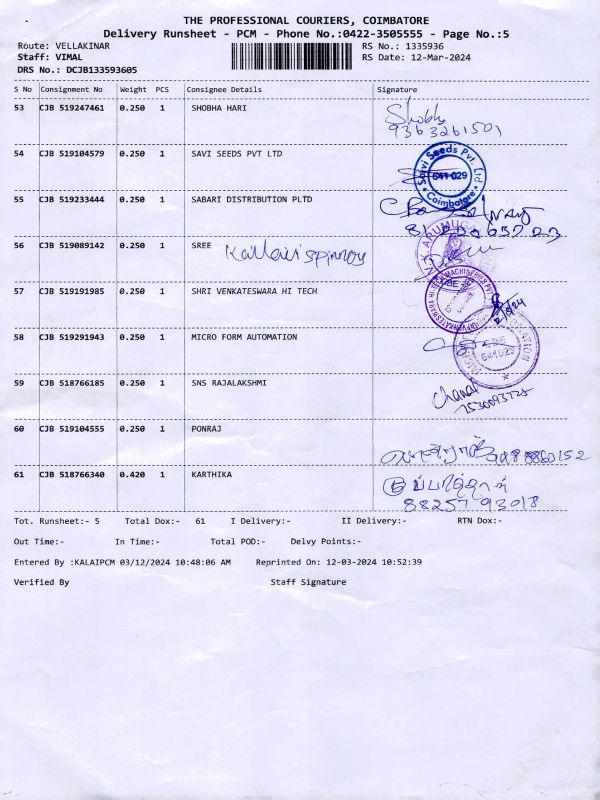 THE PROFESSIONAL COURIERS, COIMBATORE
Delivery Runsheet - PCM - Phone No.:0422-3505555 - Page No.:5
Route: VELLAKINAR RS No.: 1335936
Staff: VIMAL RS Date: 12-Mar-2024
DRS No.: DCJB133593605
S No Consignment No Weight PCS Consignee Details Signature
53 CJB 519247461 0.250 1 SHOBHA HARI Shobha
9363261501
54 CJB 519104579 0.250 1 SAVI SEEDS PVT LTD Saivi Seeds Pvt. Ltd 641 029 Coimbatore
55 CJB 519233444 0.250 1 SABARI DISTRIBUTION PLTD
56 CJB 519089142 0.250 1 SREE
57 CJB 519191985 0.250 1 SHRI VENKATESWARA HI TECH CBE
58 CJB 519291943 0.250 1 MICRO FORM AUTOMATION 641 029
59 CJB 518766185 0.250 1 SNS RAJALAKSHMI
60 CJB 519104555 0.250 1 PONRAJ
61 CJB 518766340 0.420 1 KARTHIKA
88257 93018
Tot. Runsheet:- 5 Total Dox:- 61 I Delivery:- II Delivery:- RTN Dox:-
Out Time:- In Time:- Total POD:- Delvy Points:-
Entered By :KALAIPCM 03/12/2024 10:48:06 AM Reprinted On: 12-03-2024 10:52:39
Verified By Staff Signature